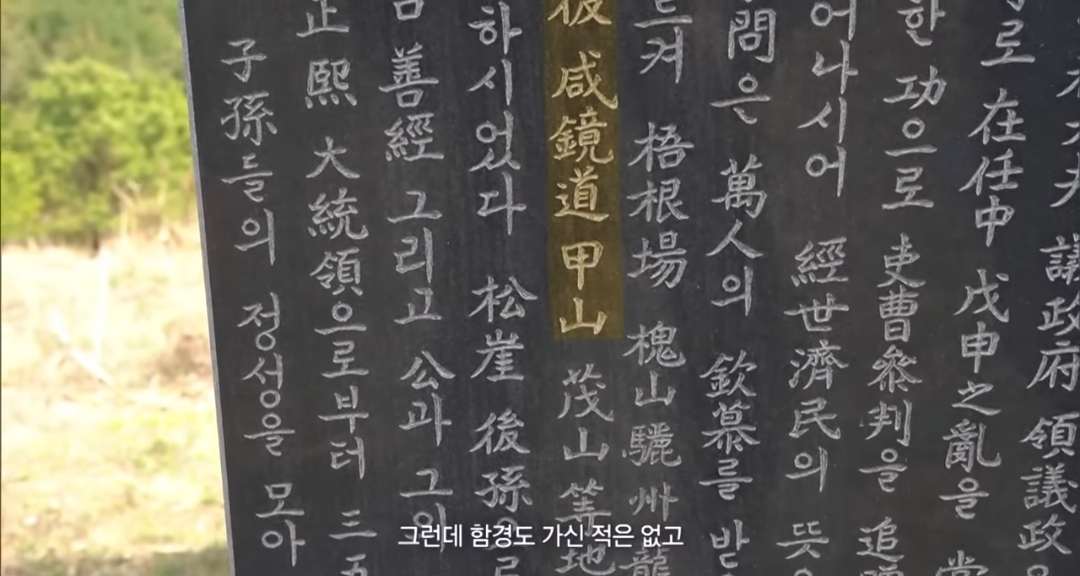 議政府 領議政
로 在任中 戊申之亂을
한 功으로 吏曹參判을 追
어나시어 經世濟民의 뜻
問은 萬人의 欽慕를 받
켜 梧根場 槐山 驪州 龍
後 咸鏡道 甲山 茂山 等地
하시었다 松崖 後孫
善經 그리고 公과 그
正熙 大統領으로부터 三
子孫들의 정성을 모아
그런데 함경도 가신 적은 없고